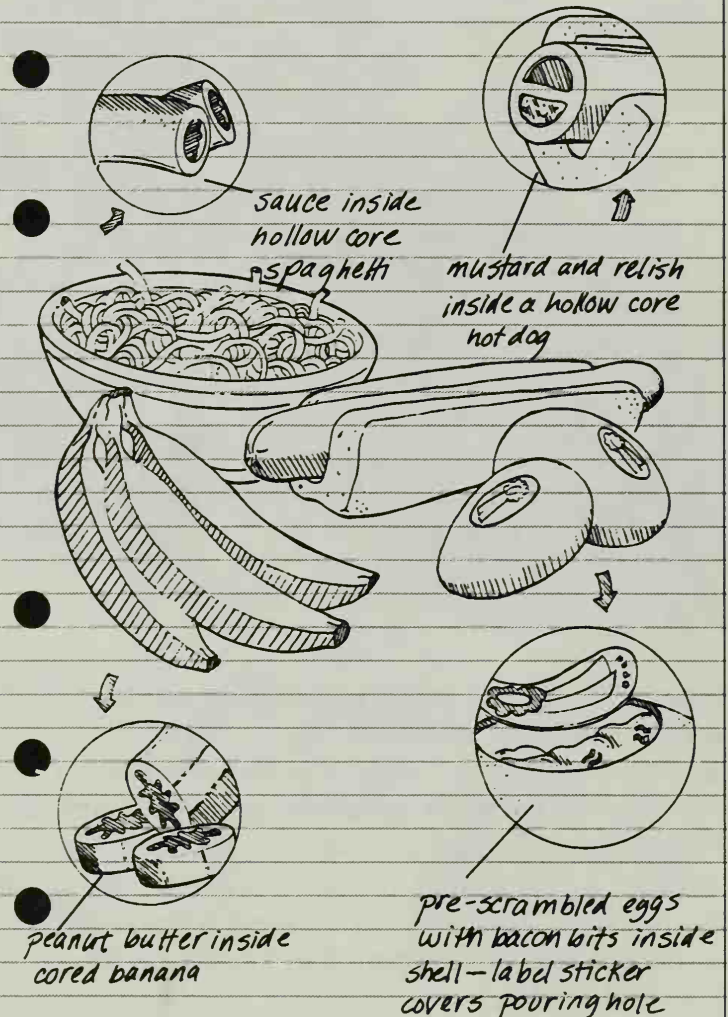 sauce inside
hollow core
spaghetti
mustard and relish
inside a hollow core
hot dog
peanut butter inside
cored banana
pre-scrambled eggs
with bacon bits inside
shell—label sticker
covers pouring hole